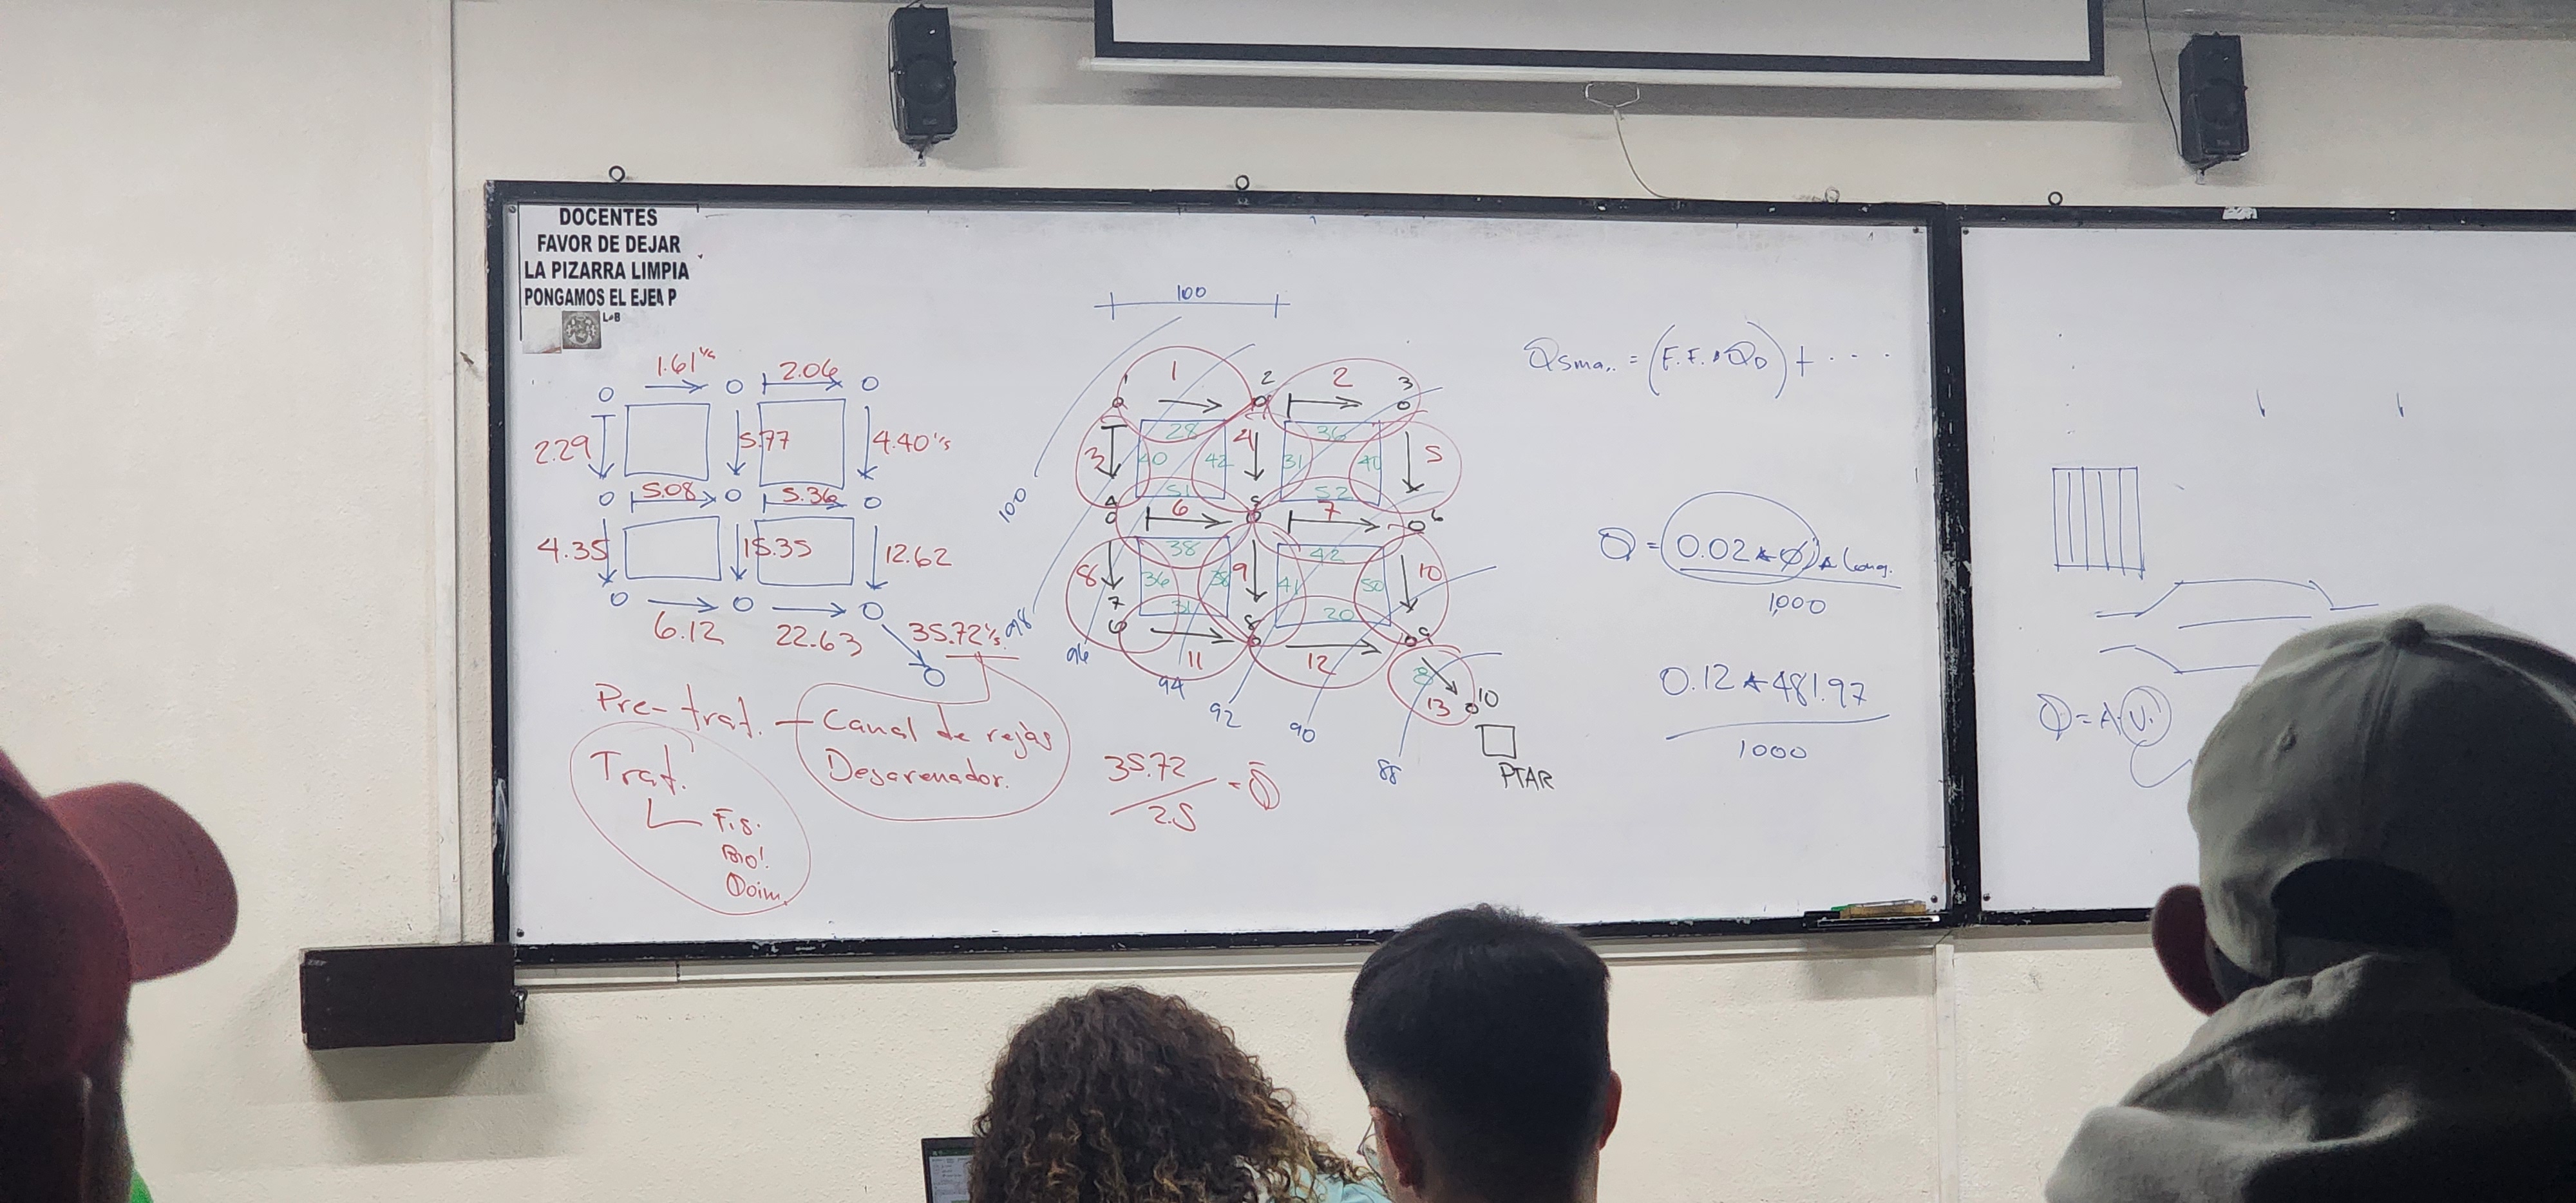 DOCENTES
FAVOR DE DEJAR
LA PIZARRA LIMPIA
PONGAMOS EL EJE
1.61
2.06
2.29
5.77
4.40
5.08
5.36
4.35
15.35
12.62
6.12
22.63
35.72
Pre-trat. - Canal de rejas
Desarenador.
Trat.
100
1
2
1
2
3
28
36
3
40
42
4
31
5
51
52
4
5
6
6
7
38
42
8
36
9
41
50
10
7
31
20
8
9
11
12
8
13
10
PTAR
100
98
96
94
92
90
88
35.72
2.5
= Q̄
= (F.F. * Q
) + ....
Q = (0.02 * Ø) * Long.
1000
0.12 * 481.97
1000
Q = A